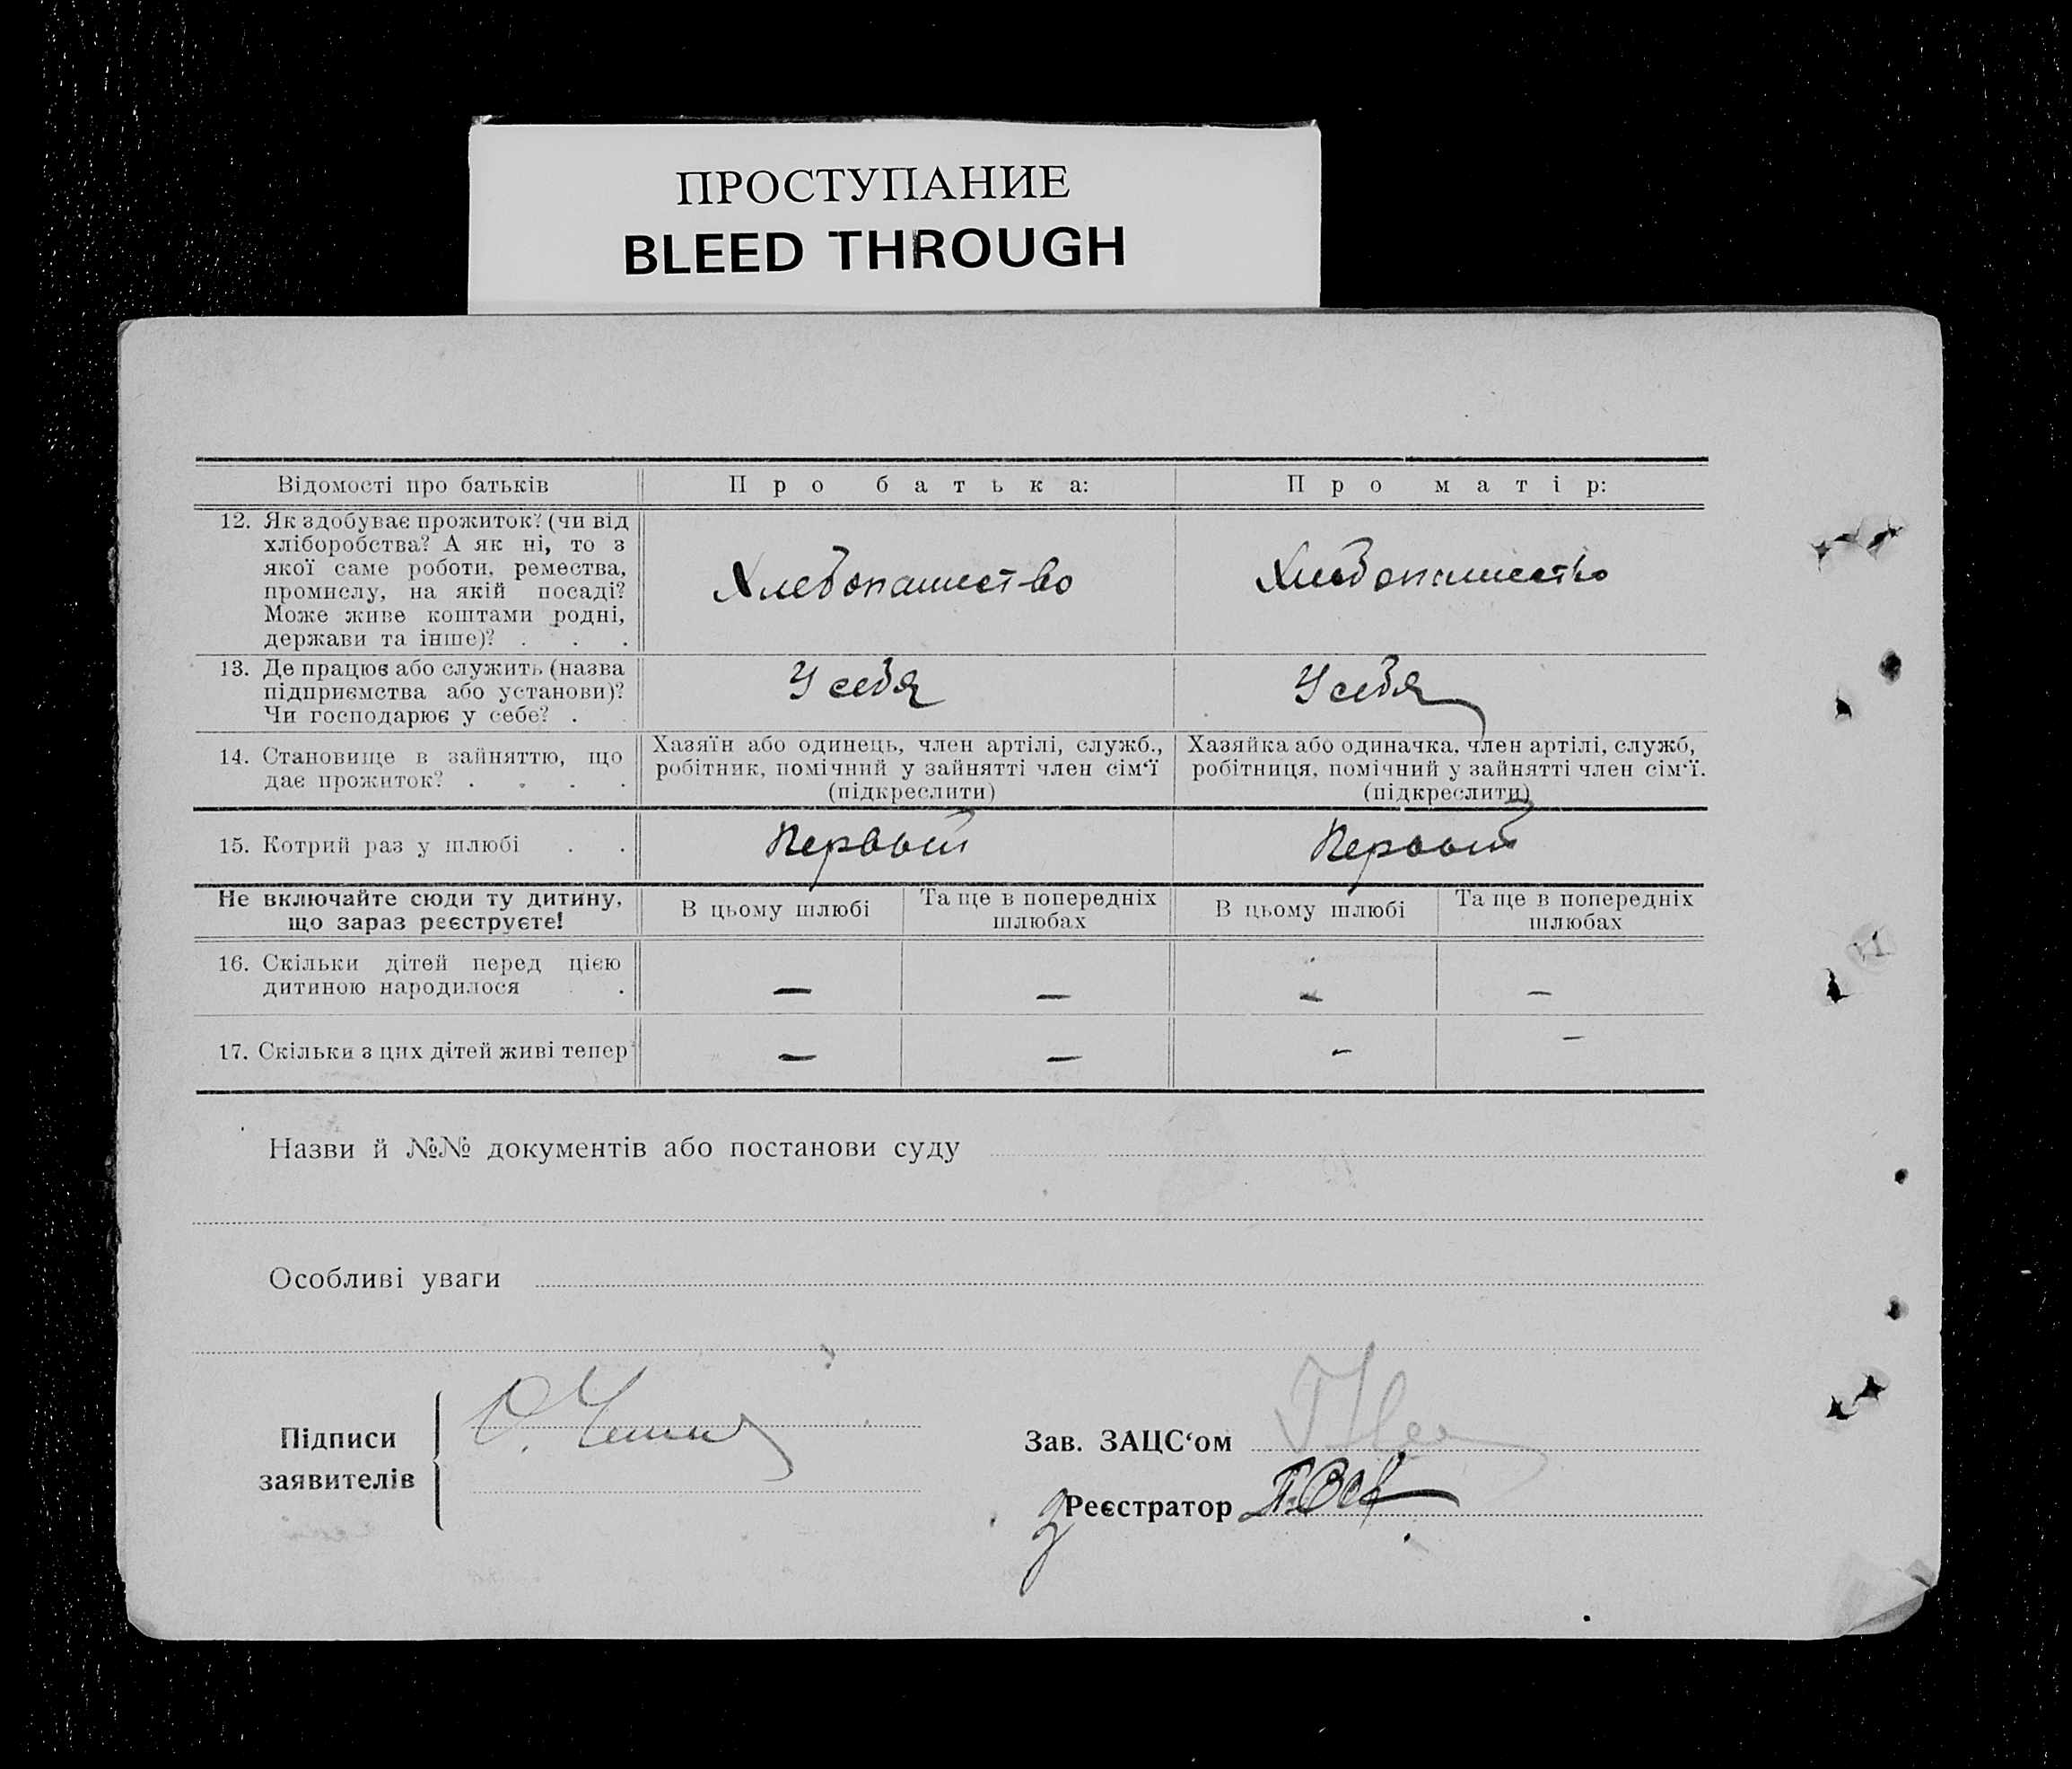 ПРОСТУПАНИЕ
BLEED THROUGH
Відомості про батьків
Про батька:
Про матір:
12. Як здобуває прожиток? (чи від
хліборобства? А як ні, то з
якої саме роботи, ремества,
промислу, на якій посаді?
Може живе коштами родні,
держави та інше)? . . .
Хлебопашество
Хлебопашество
13. Де працює або служить (назва
підприємства або установи)?
Чи господарює у себе? .
У себя
У себя
14. Становище в зайняттю, що
дає прожиток? . . . .
Хазяїн або одинець, член артілі, служб.,
робітник, помічний у зайнятті член сім‘ї
(підкреслити)
Хазяйка або одиначка, член артілі, служб,
робітниця, помічний у зайнятті член сім‘ї.
(підкреслити)
15. Котрий раз у шлюбі . .
Первый
Первый
Не включайте сюди ту дитину,
що зараз реєструєте!
В цьому шлюбі
Та ще в попередніх
шлюбах
В цьому шлюбі
Та ще в попередніх
шлюбах
16. Скільки дітей перед цією
дитиною народилося .
— — — —
17. Скільки з цих дітей живі тепер
— — — —
Назви й №№ документів або постанови суду
Особливі уваги
Підписи
заявителів
Зав. ЗАЦС‘ом
Реєстратор